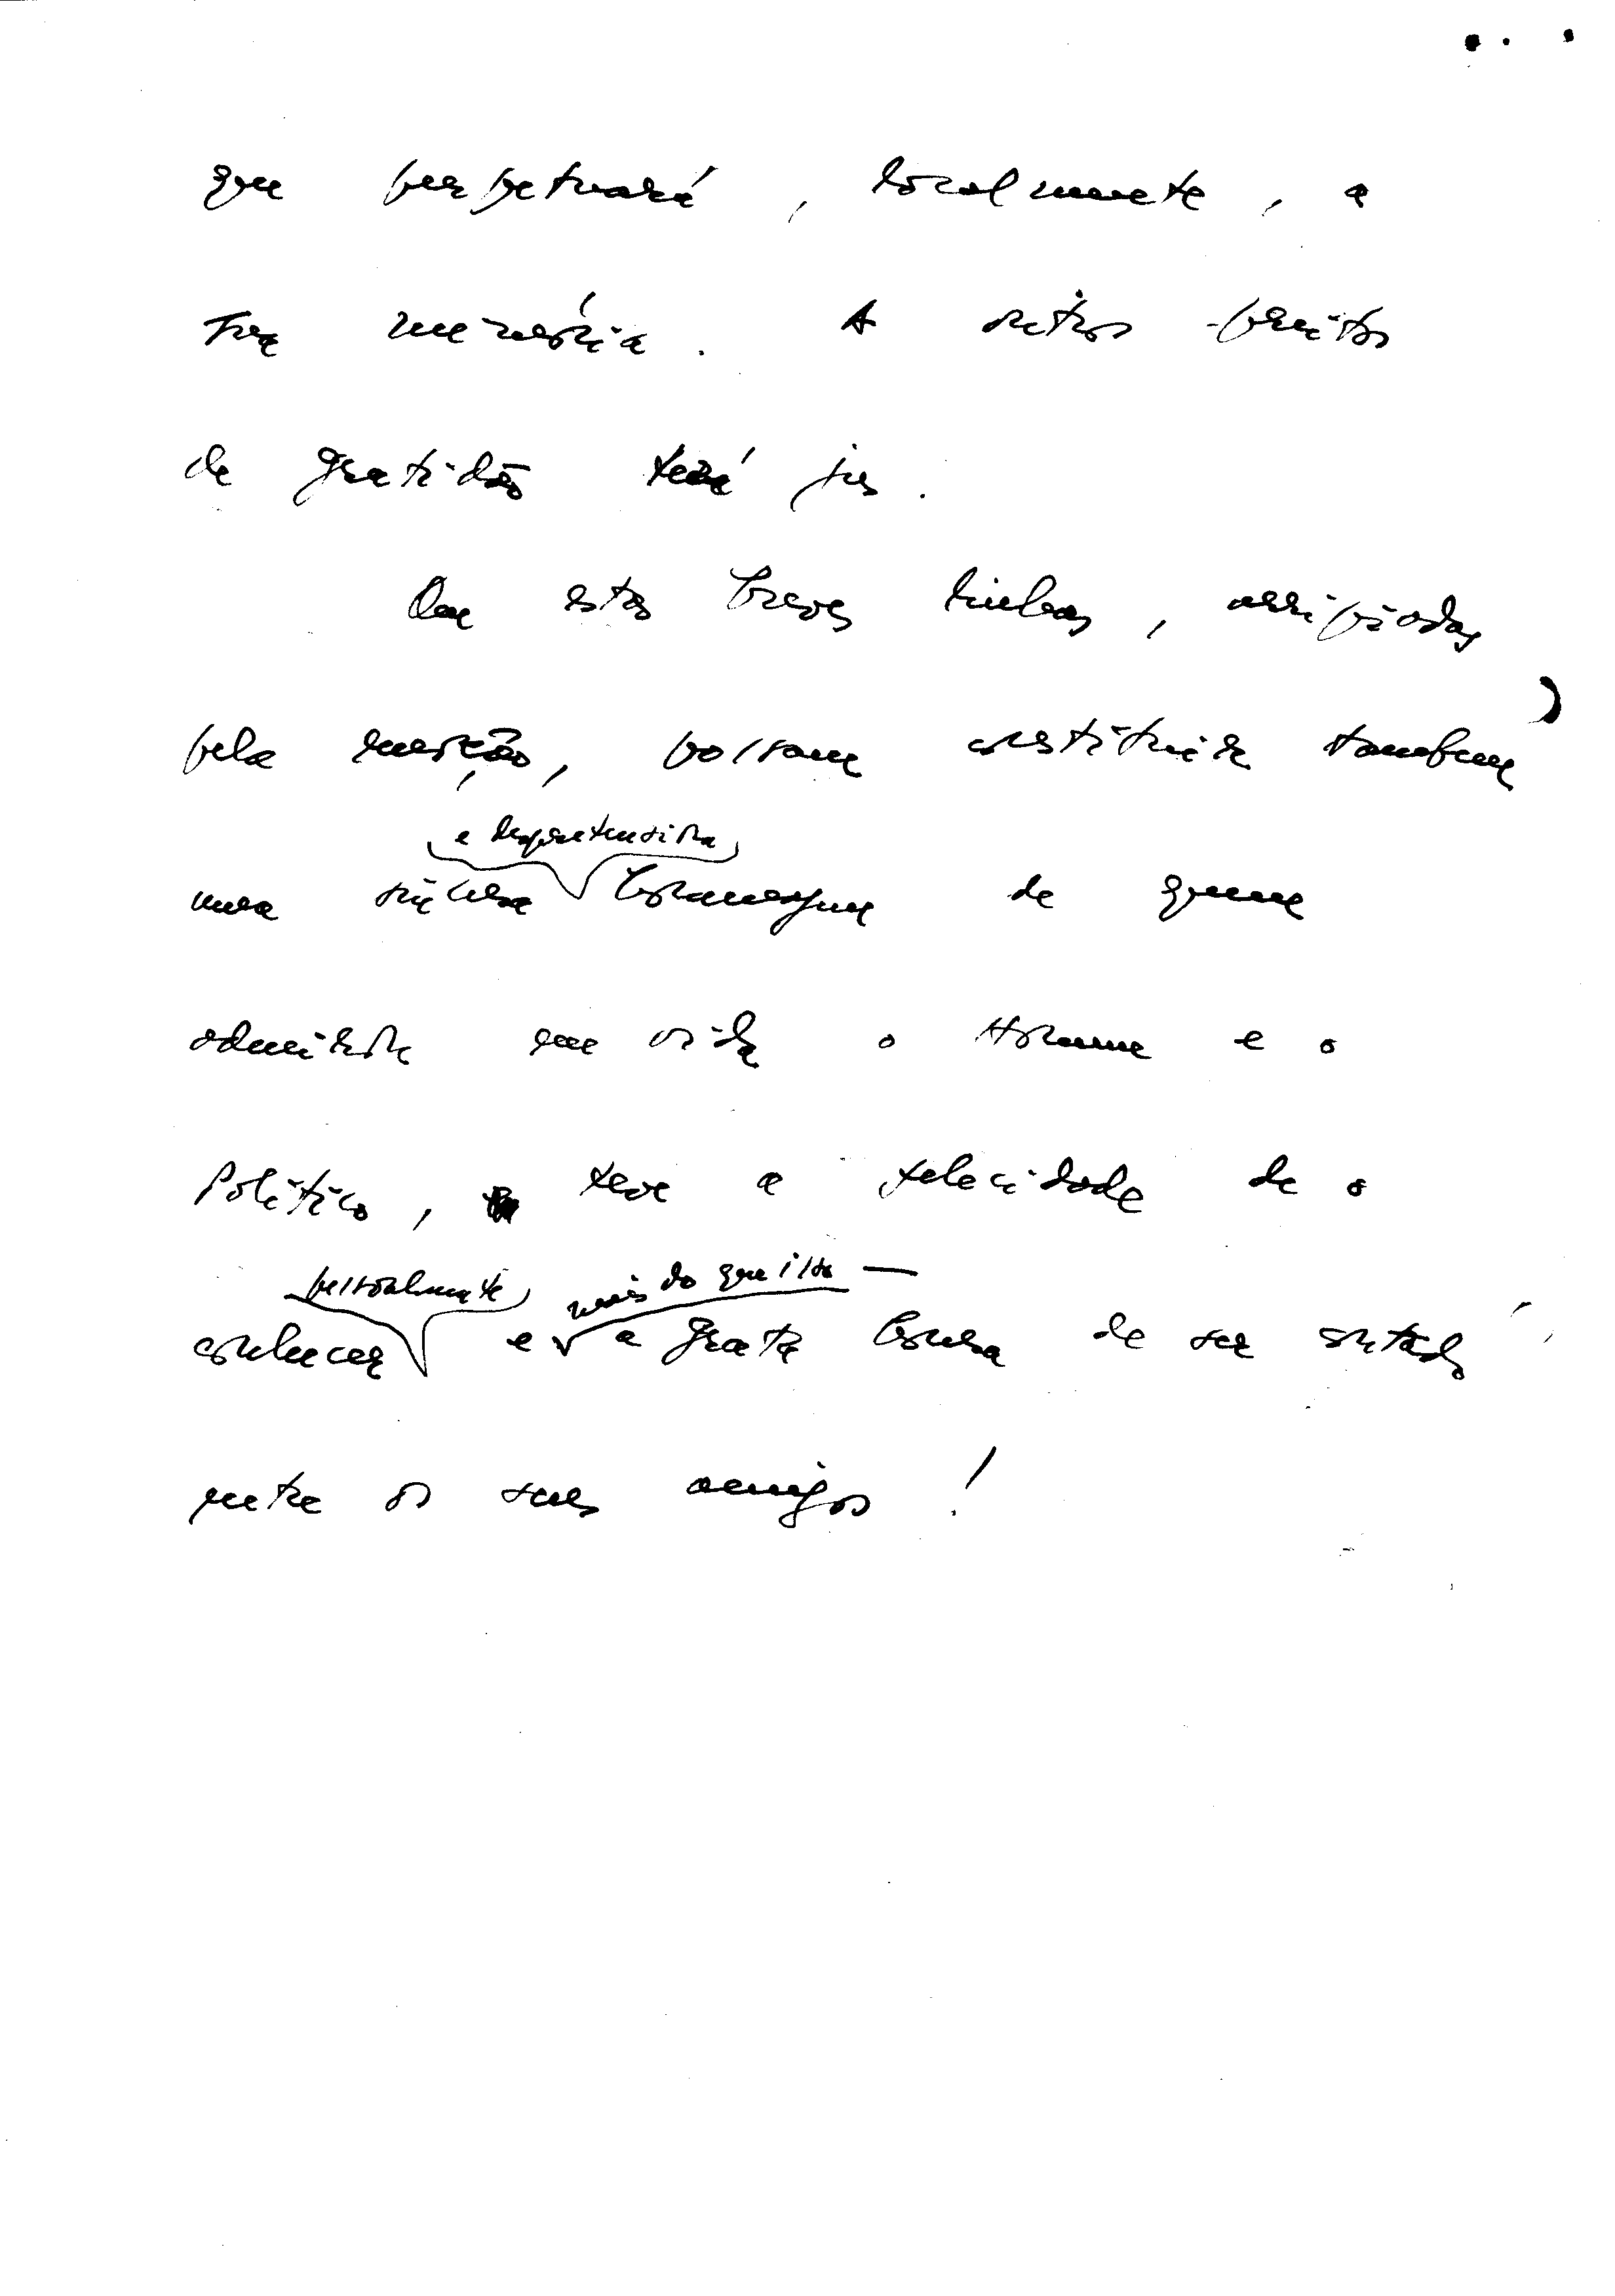 que perpetuará, localmente, a
sua memória. A outros preitos
de gratidão terá jus.
Que estas breves linhas, arripiadas
pela emoção, possam constituir também
e despretensiosa
uma singela homenagem de quem
admirou em vida o Homem e o
Político, teve a felicidade de o
pessoalmente mais do que isso —
conhecer e a grata honra de ser contado
entre os seus amigos!